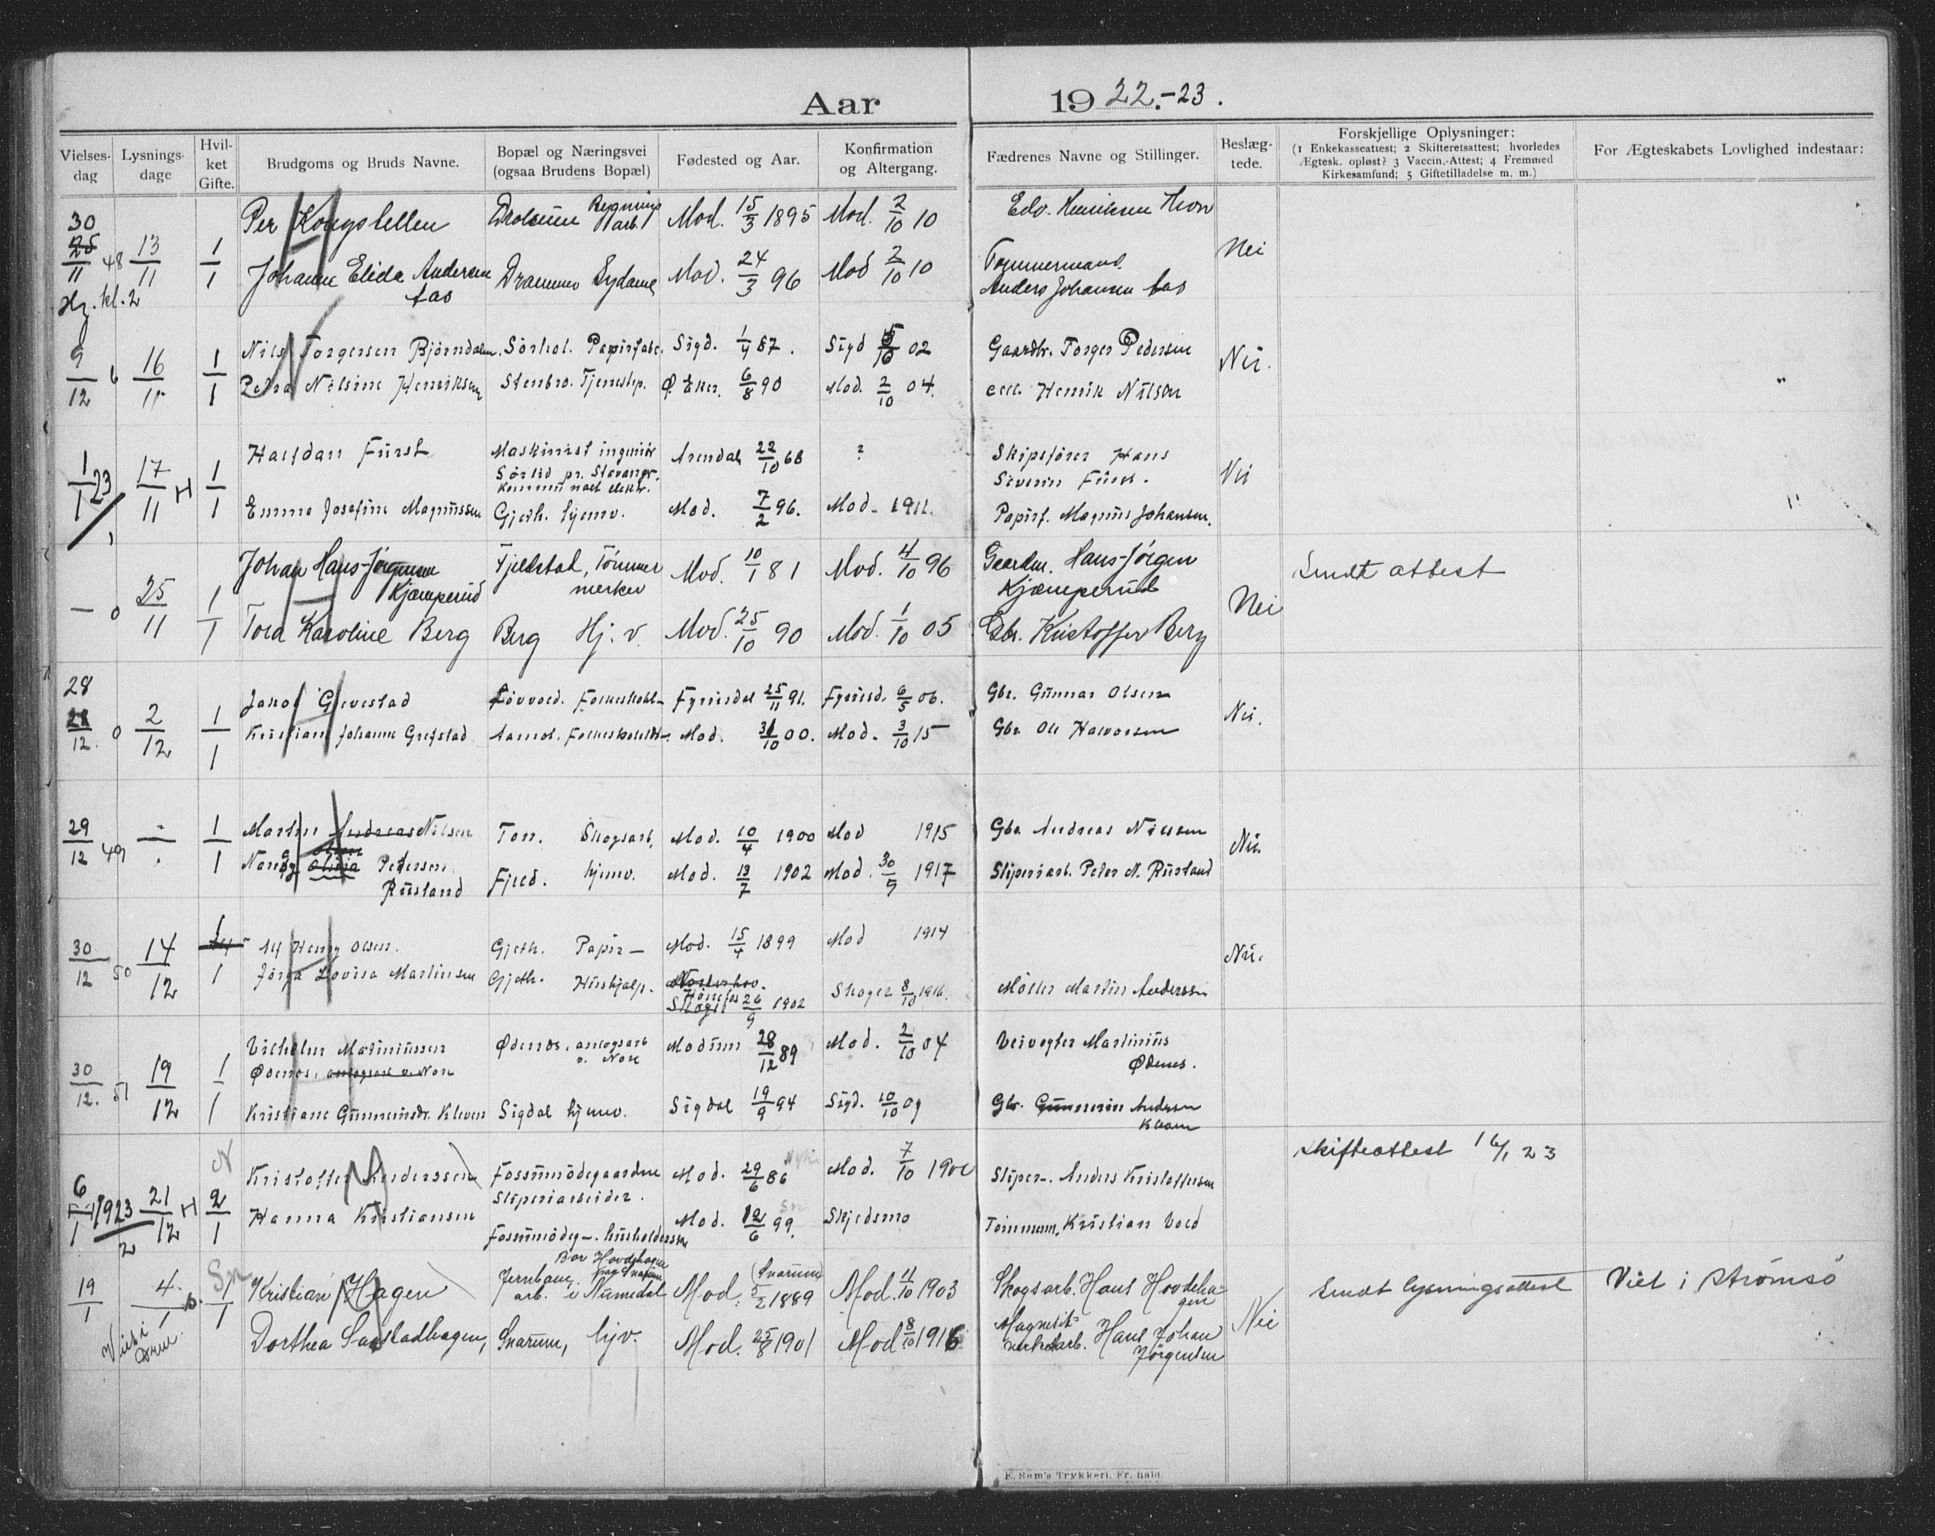 Aar 1922.-23.
Vielses-dag
Lysnings-dage
Hvil-ket Gifte.
Brudgoms og Bruds Navne.
Bopæl og Næringsvei (ogsaa Brudens Bopæl)
Fødested og Aar.
Konfirmation og Altergang.
Fædrenes Navne og Stillinger.
Beslæg-tede.
Forskjellige Oplysninger:
(1 Enkekasseattest; 2 Skifteretsattest; hvorledes
Ægtesk. opløst? 3 Vaccin.-Attest; 4 Fremmed
Kirkesamfund; 5 Giftetilladelse m. m.)
For Ægteskabets Lovlighed indestaar:
30 25/11 48 13/11 1/1 Per Kongslellen Mod. 15/3 1895 Mod. 2/10 10
Johanne Elida Andersen Aas Drammen Sydame Mod. 24/3 96 Mod 2/10 10 Tømmermand. Anders Johansen Aas Nei
kl. 2
9/12 16/11 1/1 Nils Torgersen Bjørndalen. Papirfabr. Sigd. 1/4 87. Sigd 02 Gaardbr. Torger Pedersen Nei.
Petra Nilsine Henriksen Stenbro. Tjenestep. Ø. Eker. 6/8 90 Mod. 2/10 04. Henrik Nilsen
1/1 23 17/11 H 1/1 Halfdan Fürst Maskinist ingeniør Arendal 22/10 68 ? Skipsfører Hans Nei
Emma Josefine Magnussen Gjeth. hjemv. Mod. 7/2 96. Mod. 1911. Papirf. Magnus Johansen.
— 0 25/11 1/1 Johan Hans-Jørgensen Kjæmperud Fjelstad, Tømmermerker Mod. 10/1 81 Mod. 4/10 96 Gaardm. Hans-Jørgen Kjæmperud Nei Sendt attest
Tora Karoline Berg Berg Hj. v. Mod. 25/10 90 Mod. 1/10 05 Gbr. Kristoffer Berg
28/12. 0 2/12 1/1 Jakob Grevestad Fyrisdal 25/11 91. Fyrisd. 6/5 06. Gbr. Gunnar Olsen Nei.
Kristiane Johanne Grefstad Mod. 31/10 00. Mod. 3/10 15 Gbr. Ole Halvorsen
29/12 49 -:- 1/1 Martin Andreas Nilsen Ton. Skogsarb. Mod. 10/4 1900 Mod 1915 Gbr. Andreas Nilsen Nei.
Nancy Olivia Petersen Rustand Fjeld. hjemv. Mod. 13/7 1902 Mod. 30/9 1917 Sliperiarb. Peter N. Rustand
30/12 50 14/12 1/1 Alf Henry Olsen. Gjeth. Papir— Mod. 15/4 1899 Mod 1914 Nei.
Lovisa Martinsen Gjeth. Hushjælp. Norderhov. Hønefos 26/9 1902 Skoger 8/10 1916. Møller Martin Anderssen
30/12. 51 19/12 1/1 Vilhelm Martiniussen Ødenes. Modum 28/12 89 Mod. 2/10 04 Veivogter Martinius Ødenes.
Kristiane Gunnerinsdr. Kleven Sigdal hjemv. Sigdal 19/9 94 Sigd. 10/10 09 Gbr. Gunnerin Andersen Kleven
6/1 1923 21/12 H 2/1 N Kristoffer Anderssen Fossumødegaardene Sliperiarbeider. Mod. 29/6 86 Mod. 7/10 1900 Sliper-. Anders Kristoffersen Skifteattest 16/1 23
Hanna Kristiansen Mod. 12/6 99. Skjedsmo Tømmerm. Kristian Vold
19/1 4/1 1/1 Sn Kristian Hagen Jernbanearb. i Numedal Bor Hovdehagen Mod. (Snarum) 5/2 1889 Mod. 11/10 1903 Skogsarb. Hans Hovdehagen Nei Sendt lysningsattest Viet i Strømsø
Dorthea Sandstadhagen, Snarum, hjv. Mod. 25/8 1901 Mod 8/10 1916 Magnesitverksarb. Hans Johan Jørgensen
E. Sem's Trykkeri, Fr.hald.